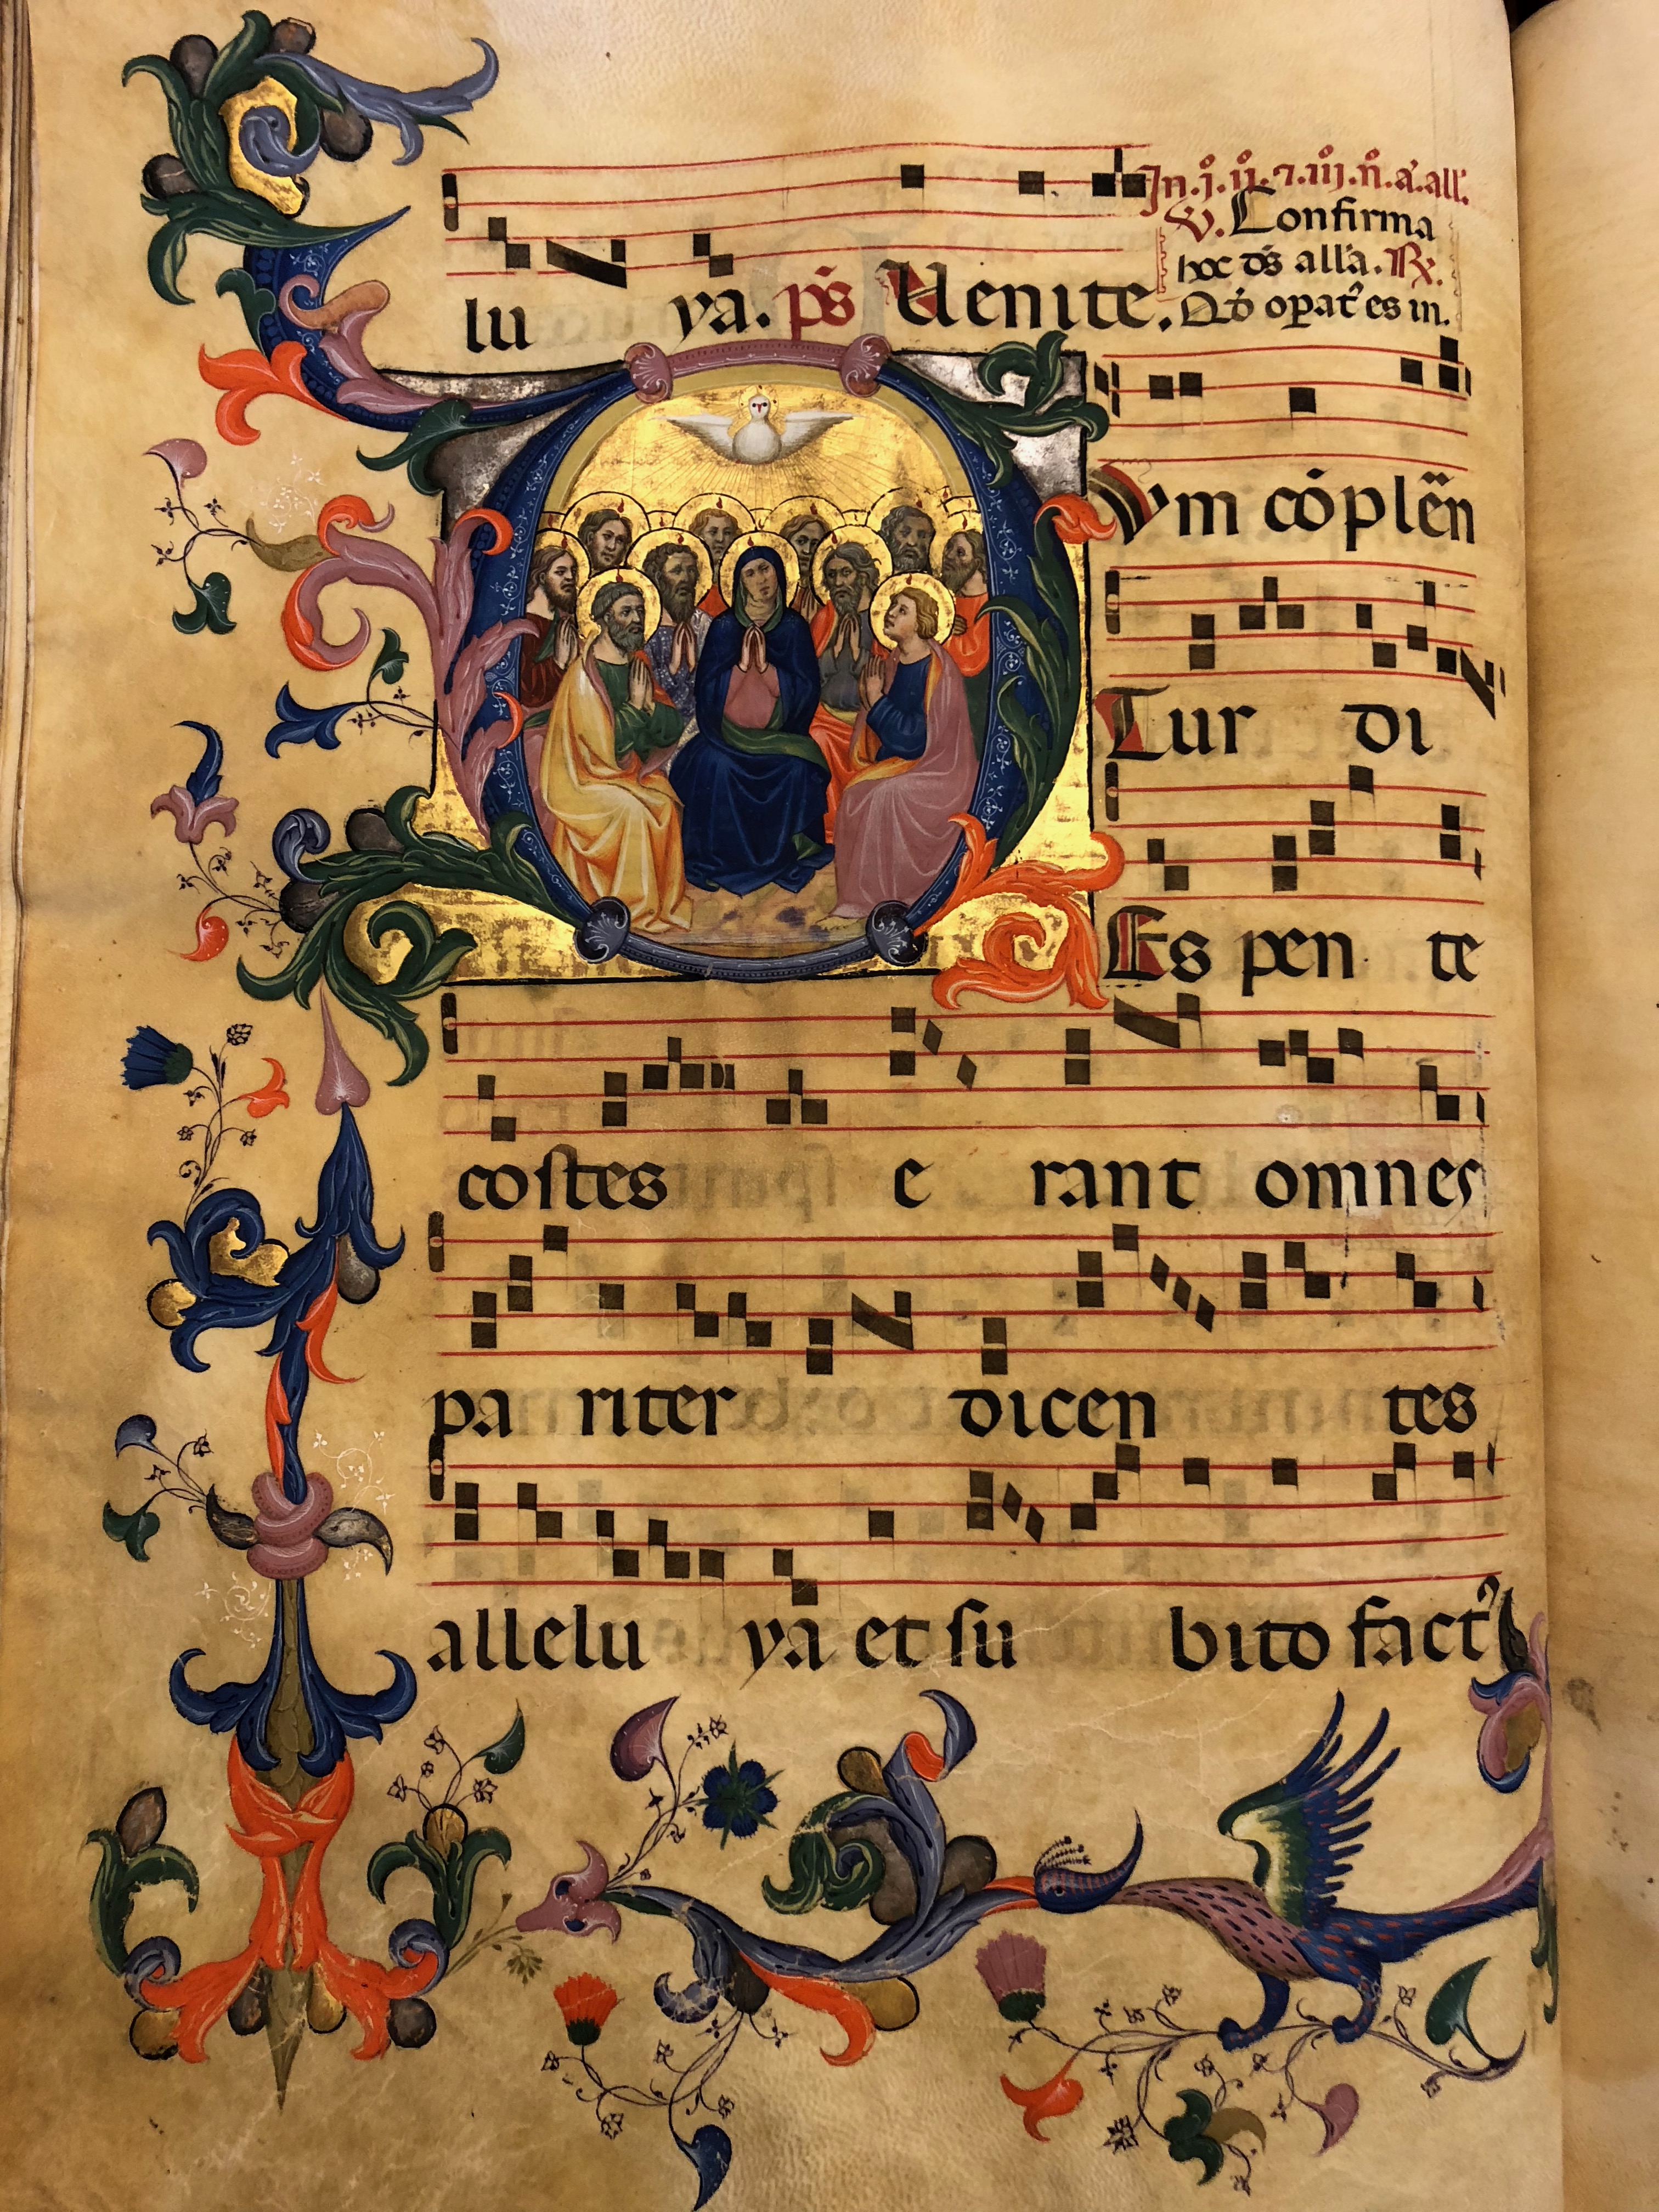 In .i. ii. ⁊ .iii. n̄. a̓. all'.
lu ya. ps̄ Venite.
V. Confirma
hoc ds̄ all'a. R.
Qd̄ opat᷒ es in.
Dum cōplēn
Tur di
Es pen te
costes e rant omnes
pa riter dicen tes
allelu ya et su bito fact᷒